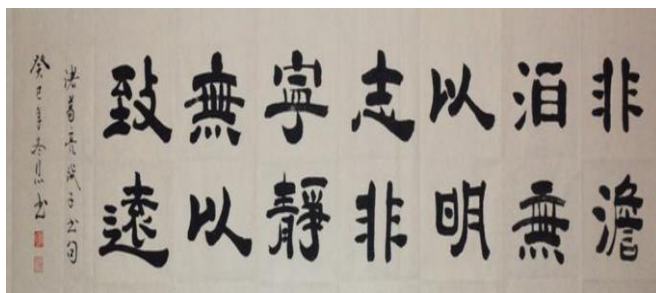 非澹
泊無
以明
志非
寧靜
無以
致遠
諸葛亮誡子書句
癸巳年冬月書